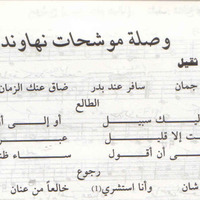 وصلة موشحات نهاوند
ثقيل
جمان سافر عند بدر ضاق عنك الزمان
الطالع
ليك سبيل أو إلى أ
ت إلا قليل عبر
ى أن أقول ساء ظن
رجوع
شان وأنا استشري(١) خالعاً من عنان